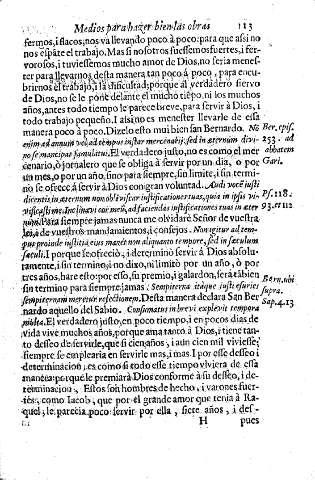 Medios para hazer bien las obras 113
fermos, i flacos, nos va llevando poco à poco: para que assi no
nos espāte el trabajo. Mas si nosotros fuessemos fuertes, i fer-
vorosos, i tuviessemos mucho amor de Dios, no seria menes-
ter para llevarnos desta manera tan poco à poco, para encu-
brirnos el trabajo, i la dificultad; porque al verdadero siervo
de Dios, no se le pone delante el mucho tiēpo, ni los muchos
años, antes todo tiempo le parece breve, para servir à Dios, i
todo trabajo pequeño. I alsi no es menester llevarle de essa
manera poco à poco. Dizelo esto mui bien san Bernardo. No
enim ad annum vel ad tempus instar mercenarij, sed in æternum divi-
no se mancipat famulatui. El verdadero justo, no es como el mer-
cenario, ò jornalero que se obliga à servir por un dia, o por
un mes, o por un año, sino para siempre, sin limite, i sin termi-
no se ofrece à servir à Dios con gran voluntad. Audi vocē iusti
dicentis, in æternum non obliviscar iustificationes tuas, quia in ipsis vi-
vificasti me. Inclinavi cor meū, ad faciendas iustificationes tuas in æternū.
Para siempre jamas nunca me olvidarè Señor de vuestra
lei, i de vuestros mandamientos, i consejos. Non igitur ad tem-
pus proinde iustitia eius manet non aliquanto tempore, sed in sæculum
sæculi. I porque se ofreciò, i determinò servir à Dios absolu-
tamente, i sin termino, i no dixo, ni limitò por un año, ò por
tres años, harè esto: por esso fu, premio, i galardon, serà tābien
sin termino para siempre jamas: Sempiterna itaque iusti esuries
sempiternam meretur refectionem. Desta manera declara San Ber
nardo aquello del Sabio. Consumatus in brevi explevit tempora
multa. El verdadero justo, en poco tiempo, i en pocos dias de
vida vive muchos años, porque ama tanto à Dios, i tiene tan-
to desseo de servirle, que si cien años, i aun cien mil viviesse;
siempre se emplearia en servirle mas, i mas. I por esse desseo i
determinacion, es como si todo esse tiempo viviera de essa
manera: porque le premiarà Dios conforme à su desseo, i de-
terminacion, Estos son hombres de hecho, i varones fuer-
tes, como Iacob, que por el grande amor que tenia à Ra-
quel, le parecia poco servir por ella, siete años, i des-
H pues
Ber. epis.
253. ad
abbatem
Gari.
Ps. 118.
93. et 112
Bern. ubi
supra.
Sap. 4. 13